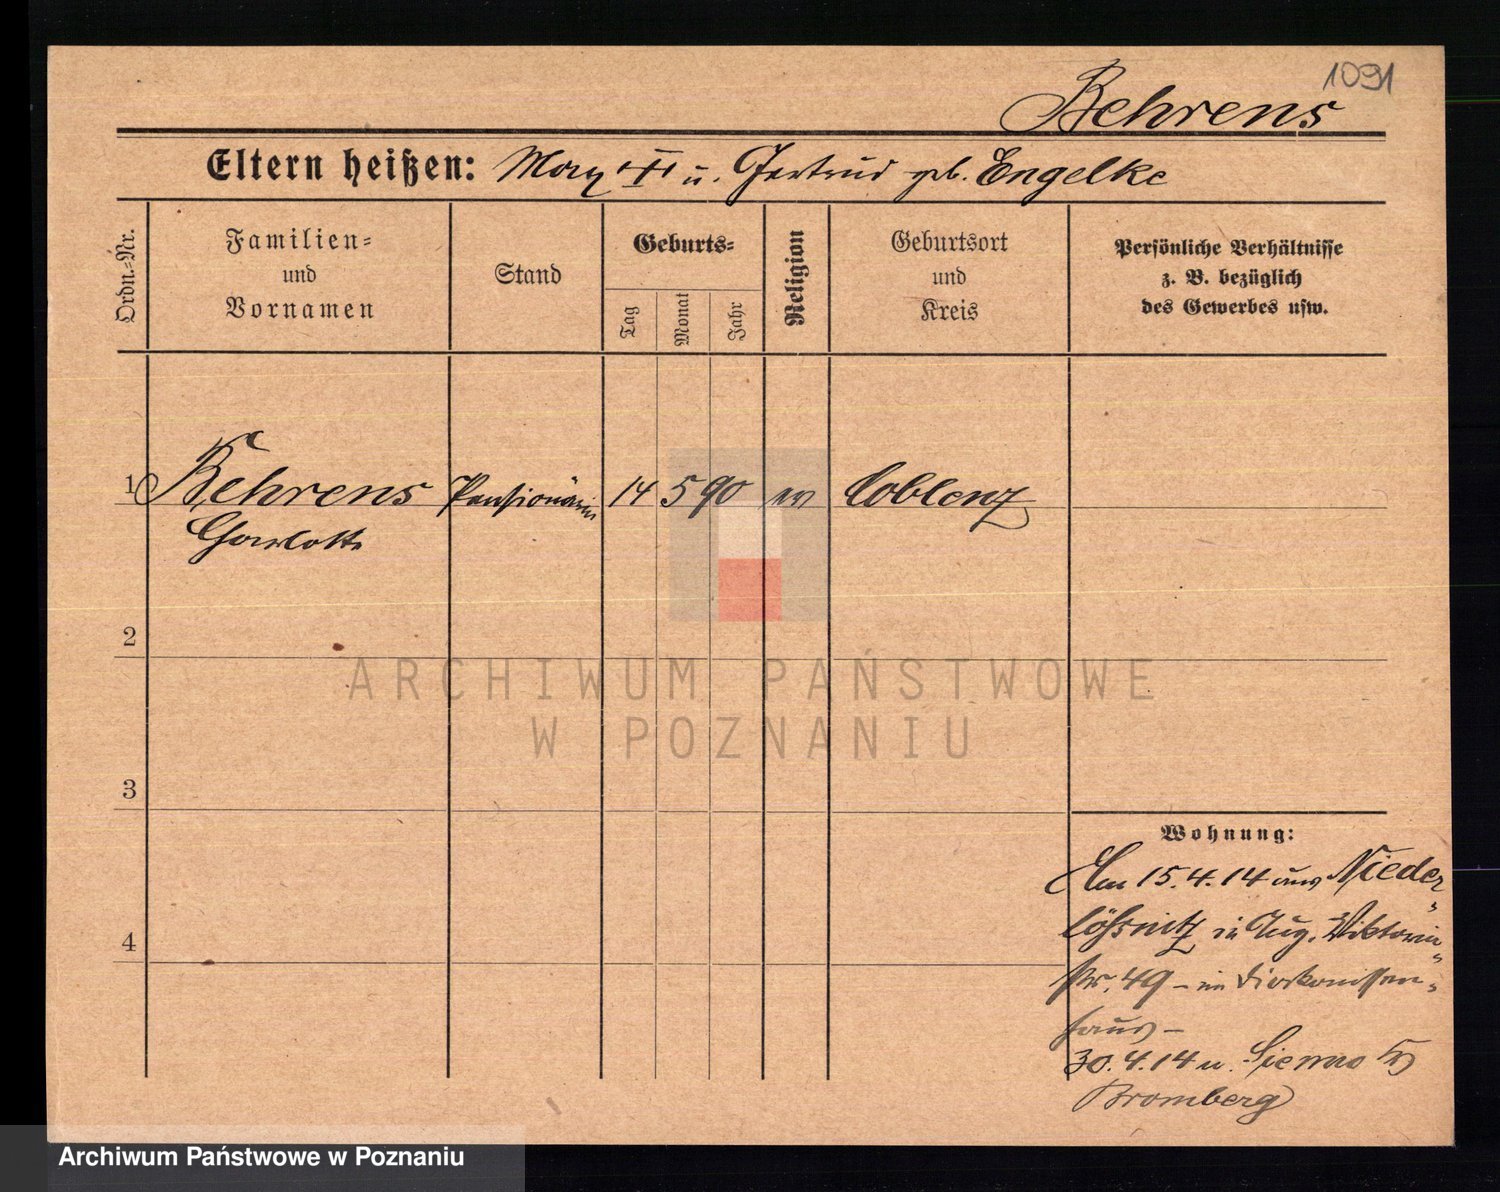 1091
Behrens
Eltern heißen: Max u. Gertrud geb. Engelke
Ordn.=Nr.
Familien=
und
Vornamen
Stand
Geburts=
Tag
Monat
Jahr
Religion
Geburtsort
und
Kreis
Persönliche Verhältnisse
z. B. bezüglich
des Gewerbes usw.
1 Behrens Pensionärin 14 5 90 ev Coblenz
Charlotte
2
3
4
Wohnung:
Am 15.4.14 aus Nieder
lößnitz in Aug. Viktoria
str. 49 – im Diakonissen-
haus –
30.4.14 n. Sienno Kr
Bromberg
ARCHIWUM PAŃSTWOWE
W POZNANIU
Archiwum Państwowe w Poznaniu